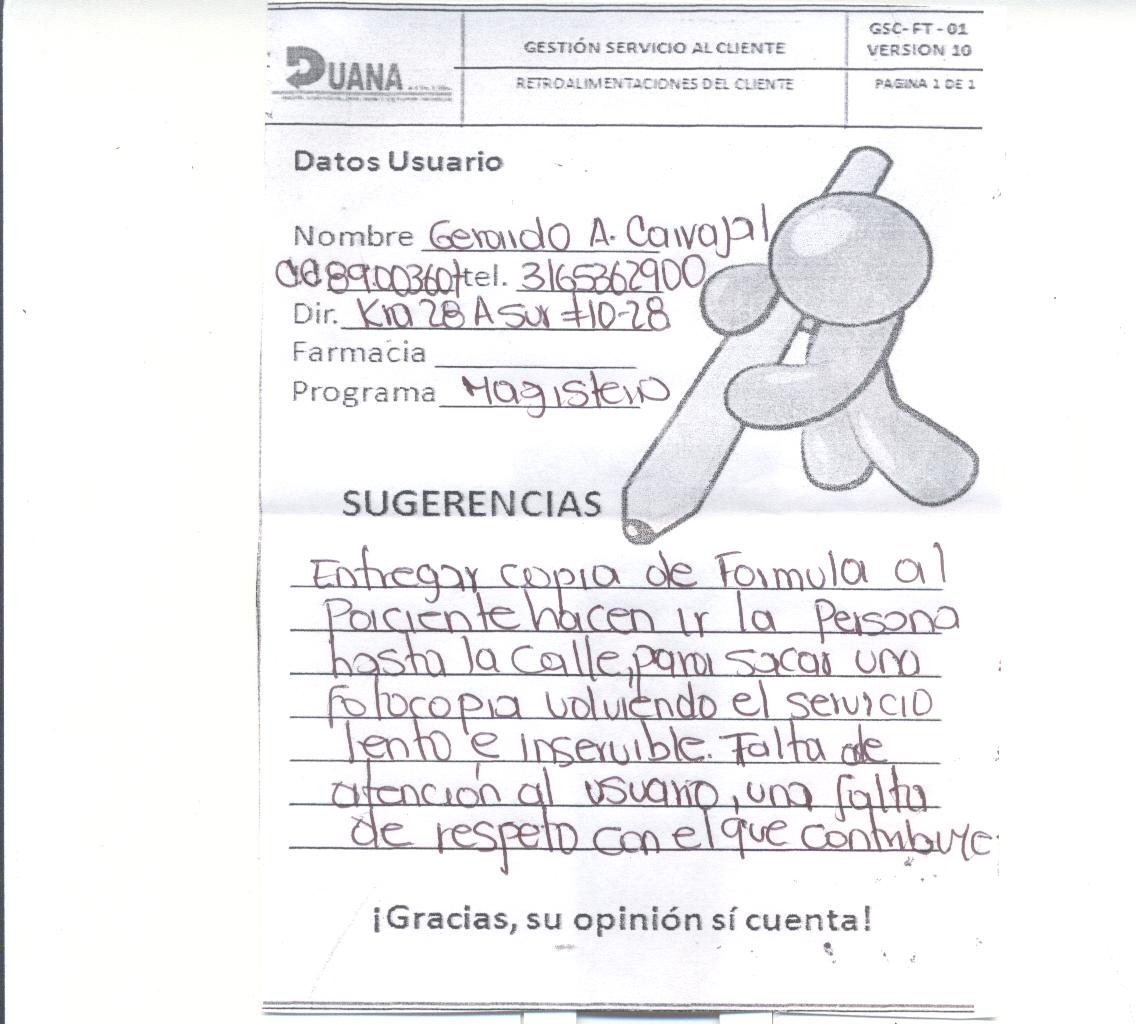 DUANA
GESTIÓN SERVICIO AL CLIENTE
GSC-FT-01
VERSION 10
RETROALIMENTACIONES DEL CLIENTE
PAGINA 1 DE 1
Datos Usuario
Nombre Gerardo A. Carvajal
CC 89.003607 tel. 3165362900
Dir. Kra 28 A Sur #10-28
Farmacia
Programa Magisterio
SUGERENCIAS
Entregar copia de Formula al
Paciente hacen ir la Persona
hasta la calle, para sacar una
fotocopia volviendo el servicio
lento e inservible. Falta de
atención al usuario, una falta
de respeto con el que contribuye
¡Gracias, su opinión sí cuenta!